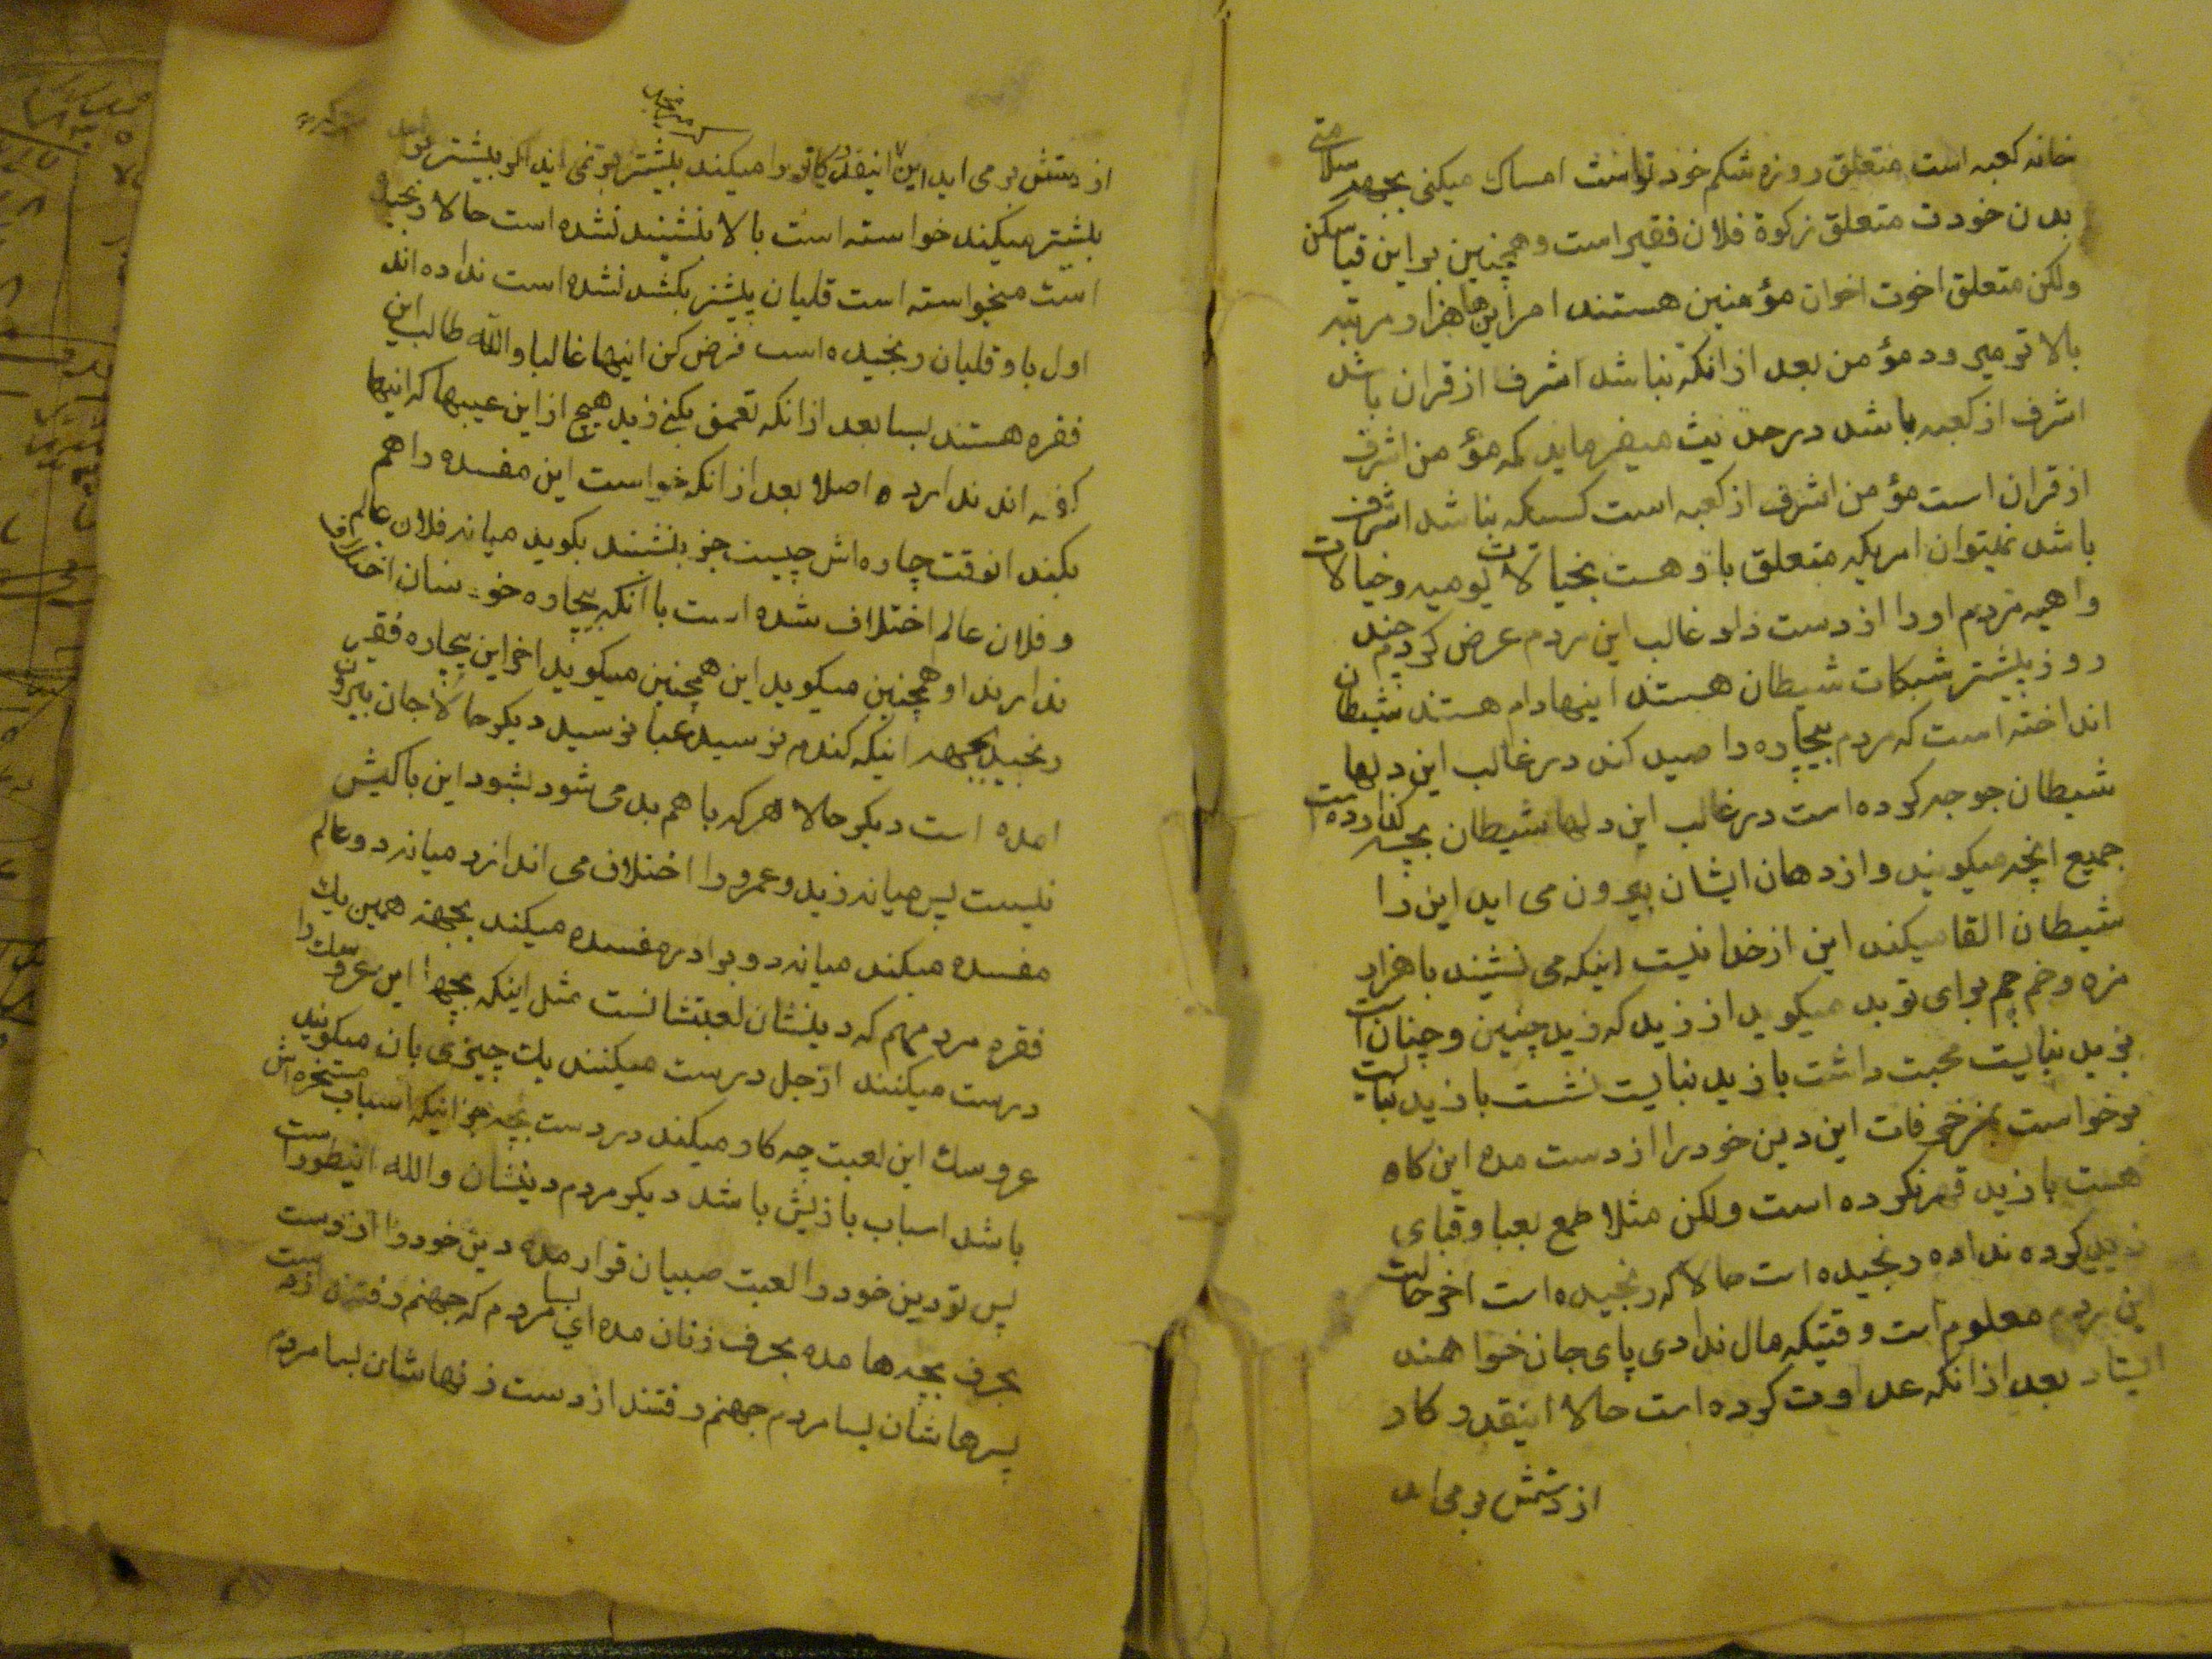 خانه کعبه است متعلق روزه شکم خود تواست امساك ميکنی بجهة سلامتی
بدن خودت متعلق زکوة فلان فقير است و همچنين بر اين قياس کن
ولکن متعلق اخوت اخوان مؤمنين هستند امر اينها هزار مرتبه
بالا تر ميرود مؤمن بعد از انکه بناشد اشرف از قران باشد
اشرف از کعبه باشد در حديث ميفرمايد که مؤمن اشرف
از قران است مؤمن اشرف از کعبه است کسيکه بناشد اشرف
باشد نميتوان امريکه متعلق باو هست بخيالات يوميه و خيالات
واهيه مردم او را از دست داد غالب اين مردم عرض کردم چند
روز پيشتر شبکات شيطان هستند اينها دام هستند شيطان
انداخته است که مردم بيچاره را صيد کند در غالب اين دلها
شيطان جوجه کرده است در غالب اين دلها شيطان بچه گذارده است
جميع انچه ميکويند و از دهان ايشان بيرون می ايد اين را
شيطان القا ميکند اين از خدا نيست اينکه می نشيند با هزار
مزه و خم چم برای تو بد ميکويد از زيد که زيد چنين و چنان است
بزيد نبايست محبت داشت با زيد نبايست نشست با زيد نبايست
برخواست بمزخرفات اين دين خود را از دست مده اين کاه
هست با زيد قهر نکرده است ولکن مثلا طمع بعبا و قبای
زيد کرده نداده رنجيده است حالا که رنجيده است اخر حالت
اين مردم معلوم است وقتيکه مال ندادی پای جان خواهند
ايستاد بعد از انکه عداوت کرده است حالا اينقدر کار
از دستش بر می ايد
از دستش بر می ايد اين اينقدر کار را ميکند بيشتر بر نمی ايد اکر بيشتر بر
بيشتر ميکند خواسته است بالا بنشيند نشده است حالا رنجيده
است ميخواسته است قليان پيشتر بکشد نشده است نداده اند
اول باو قليان رنجيده است فرض کن اينها غالبا والله طالب اين
فقره هستند بسا بعد از انکه تعمق بکنی زيد هيچ از اين عيبها که اينها
کفته اند ندارد اصلا بعد از انکه خواست اين مفسده را هم
بکند انوقت چاره اش چيست جز بنشيند بکويد ميانه فلان عالم
و فلان عالم اختلاف شده است با انکه بيچاره خودشان اختلاف
ندارند او همچنين ميکويد اين همچنين ميکويد اخر اين بيچاره فقير
رنجيد بجهة اينکه کندم نرسيد عبا نرسيد ديکر حالا جان بيرون
امده است ديکر حالا هر که با هم بد می شود بشود اين باکيش
نيست پس ميانه زيد و عمرو را اختلاف می اندازد ميانه دو عالم
مفسده ميکند ميانه دو برادر مفسده ميکند بجهة همين يك
فقره مردم هم که دينشان لعبتشانست مثل اينکه بچها اين عروسك را
درست ميکنند از جل درست ميکنند يك چيزی بان ميکويند
عروسك اين لعبت چه کار ميکند در دست بچه جز اينکه اسباب مسخره اش
باشد اسباب بازيش باشد ديکر مردم دينشان والله اينطور است
پس تو دين خود را لعبت صبيان قرار مده دين خود را از دست
بحرف بچه ها مده بحرف زنان مده ای بسا مردم که جهنم رفتند از دست
پسرهاشان بسا مردم جهنم رفتند از دست زنهاشان بسا مردم